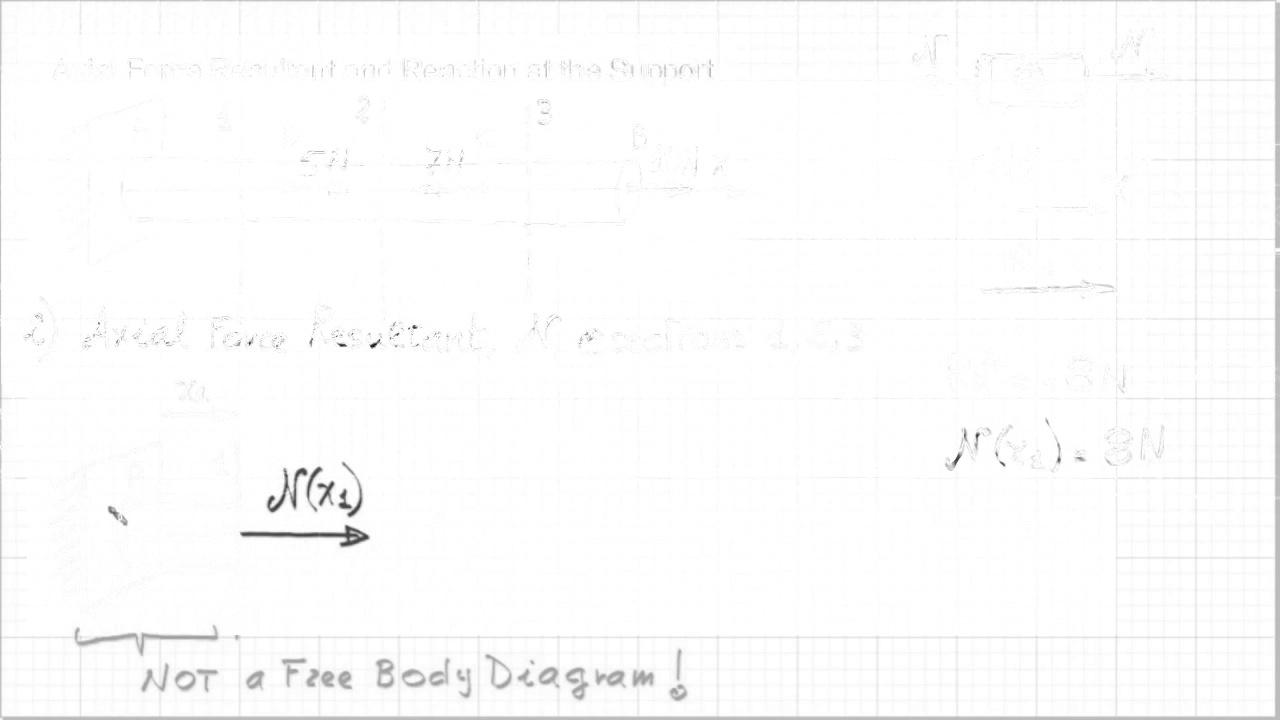 Axial Force Resultant and Reaction at the Support
N N
A 1 2 3
5N 7N B x
2) Axial Force Resultant, N, @ sections 1, 2, 3
x₁
N(x₁) = 8N
A 1
N(x₁)
NOT a Free Body Diagram!